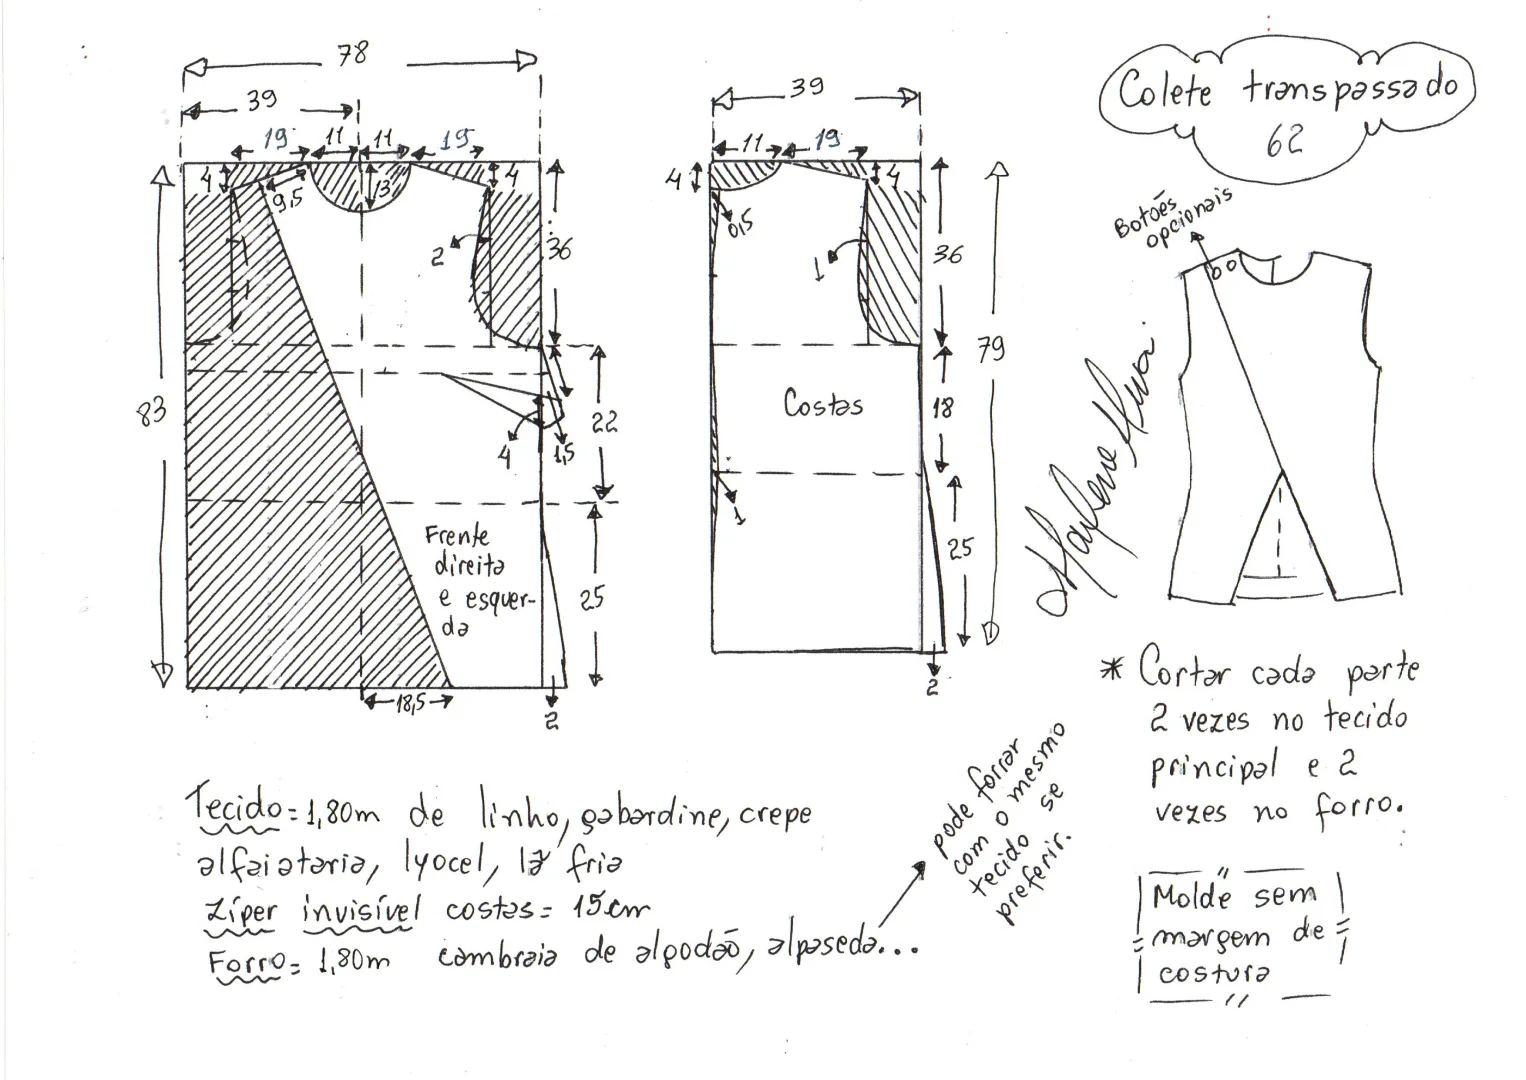 78
39
19 11 11 19
4
9,5
13
4
2
36
83
22
4 1,5
Frente
direita
e esquer-
da
25
18,5
2
39
11 19
4
4
0,5
1
36
79
Costas
18
1
25
2
Colete transpassado
62
Botões
opcionais
* Cortar cada parte
2 vezes no tecido
principal e 2
vezes no forro.
Tecido = 1,80m de linho, gabardine, crepe
alfaiataria, lyocel, lã fria
Zíper invisível costas = 15cm
Forro = 1,80m cambraia de algodão, alpaseda...
pode forrar
com o mesmo
tecido se
preferir.
Molde sem
margem de
costura